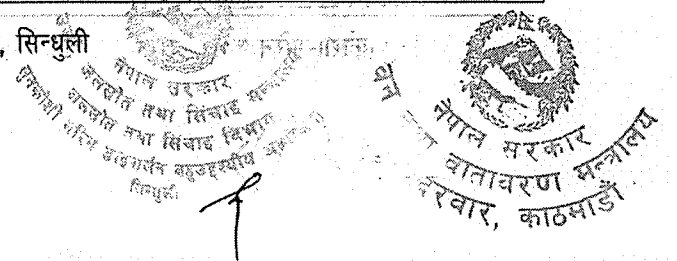 , सिन्धुली
नेपाल सरकार
जलस्रोत तथा सिंचाइ
जलस्रोत तथा सिंचाइ विभाग
सुनकोशी मरिन डाइभर्सन बहुउद्देश्यीय
सिन्धुली
नेपाल सरकार
वन तथा वातावरण मन्त्रालय
दरवार, काठमाडौं